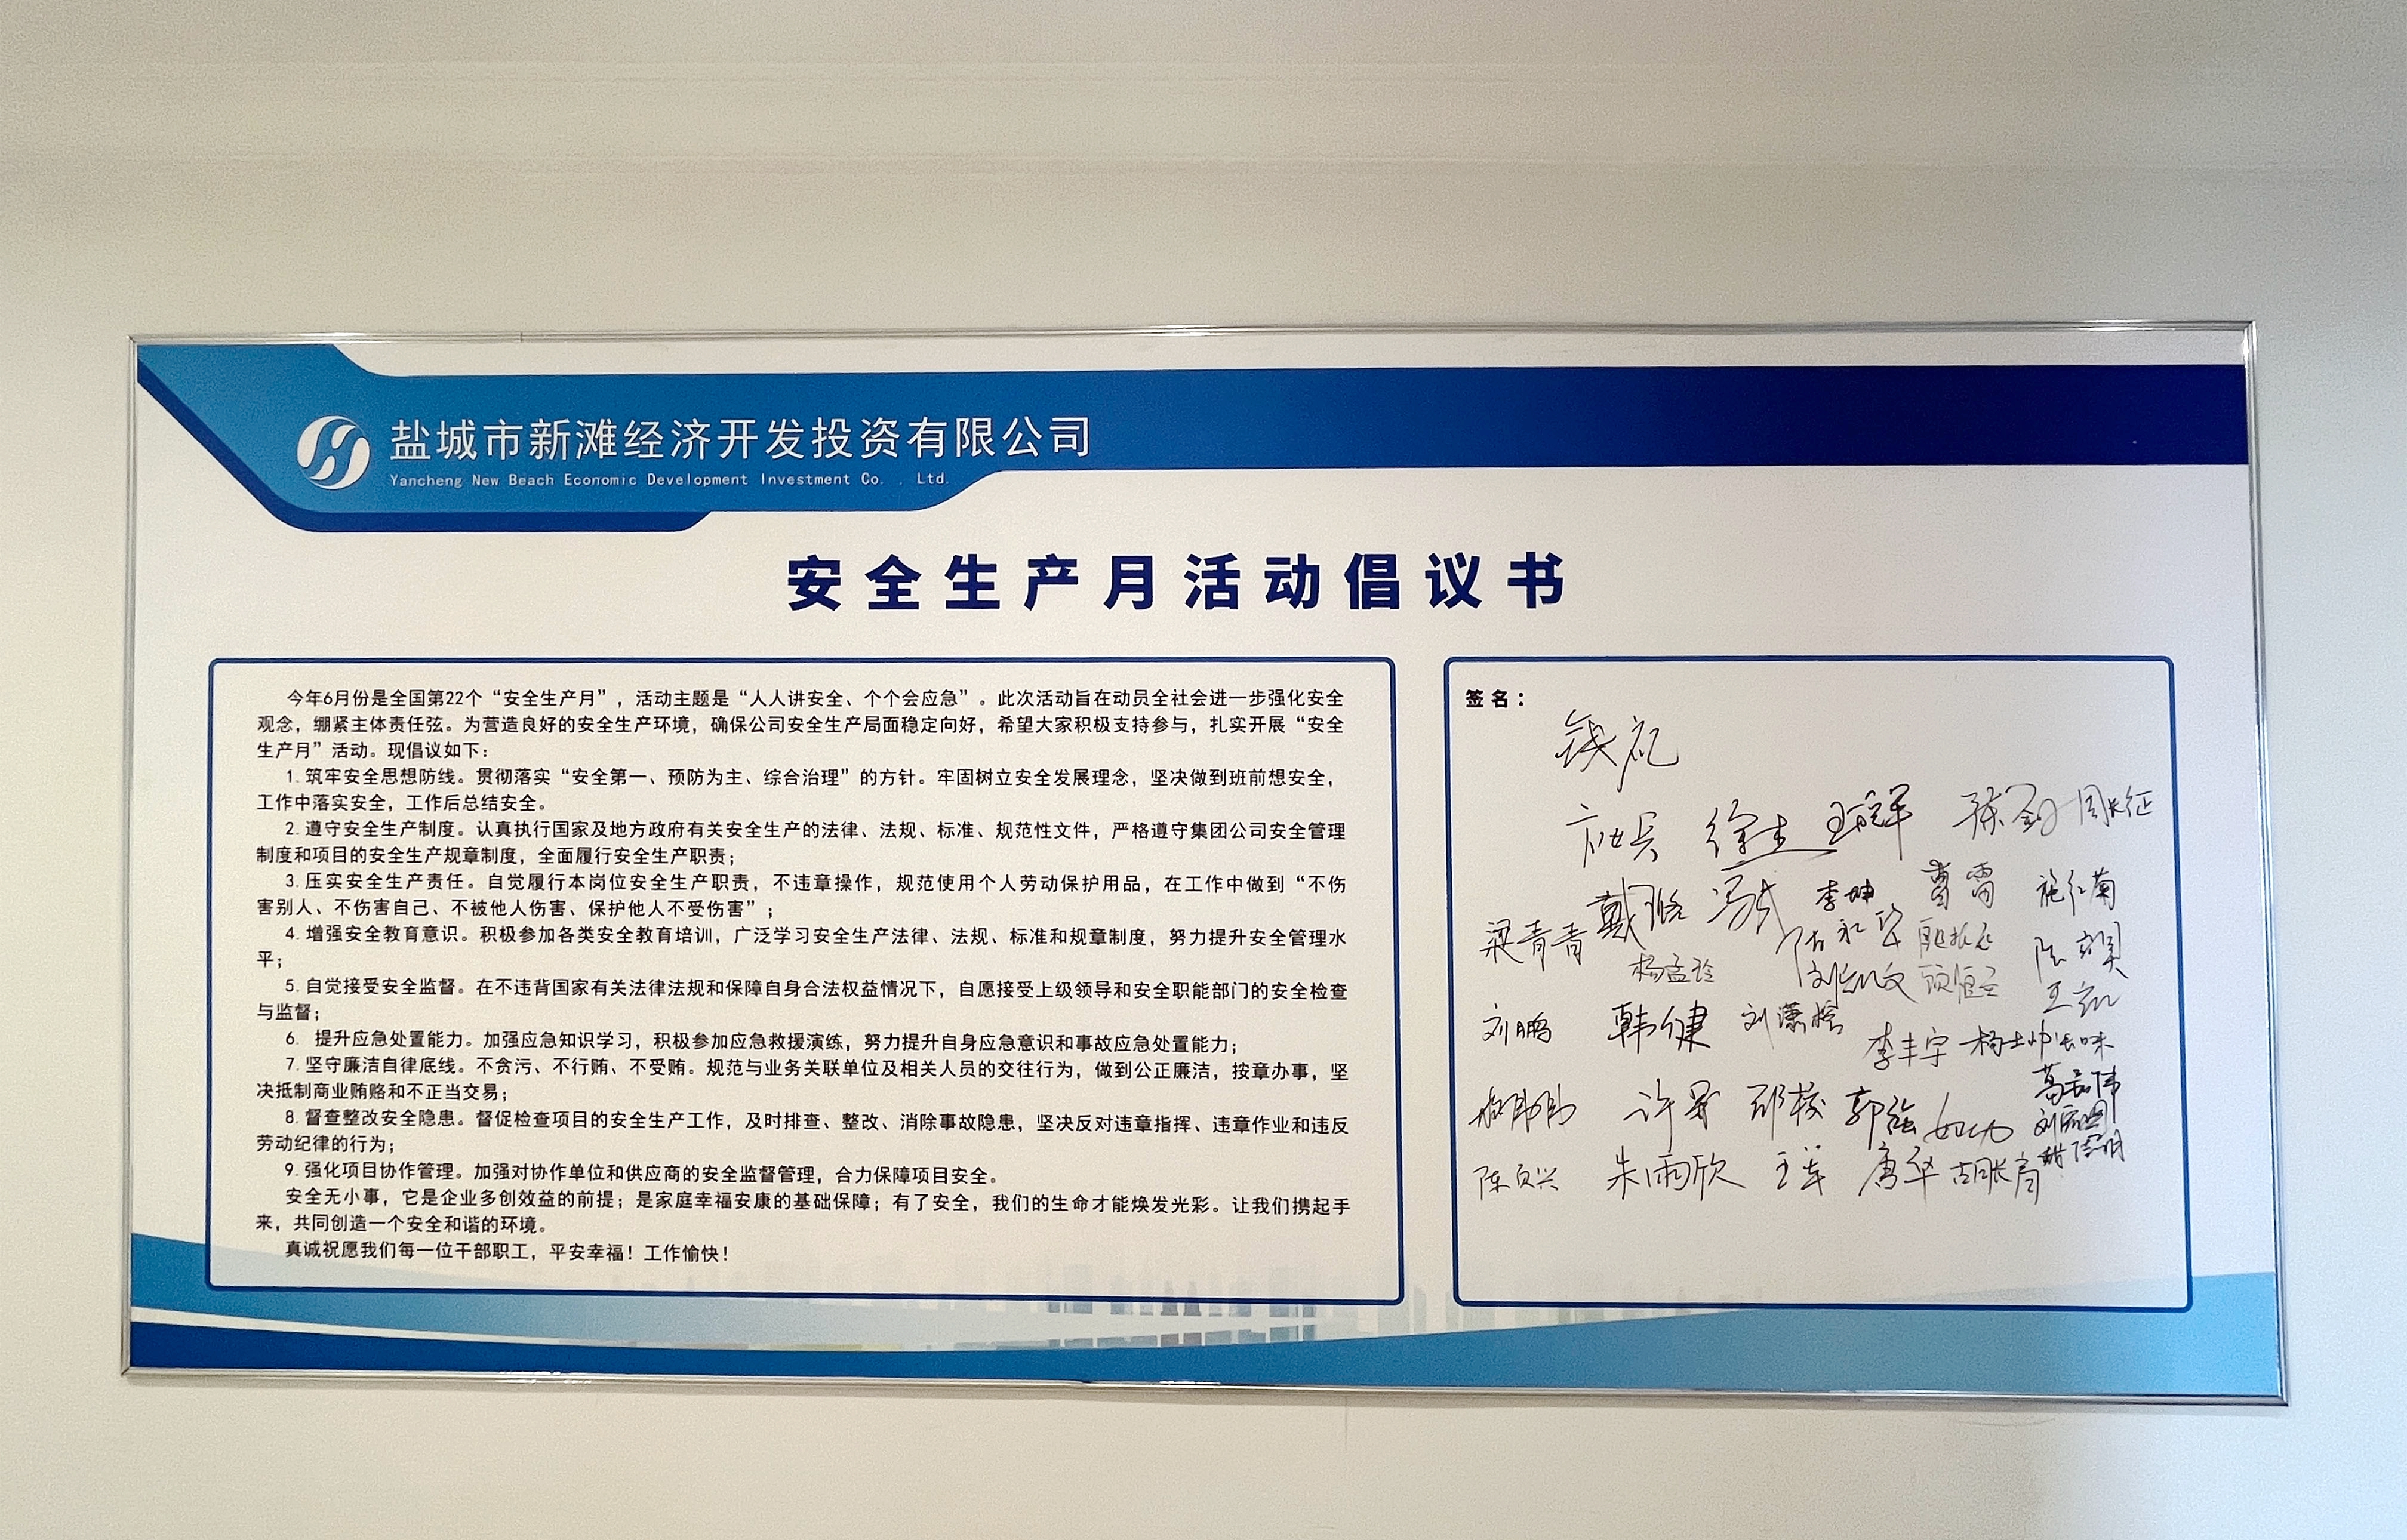 盐城市新滩经济开发投资有限公司
Yancheng New Beach Economic Development Investment Co. . Ltd.
安全生产月活动倡议书
今年6月份是全国第22个“安全生产月”，活动主题是“人人讲安全、个个会应急”。此次活动旨在动员全社会进一步强化安全
观念，绷紧主体责任弦。为营造良好的安全生产环境，确保公司安全生产局面稳定向好，希望大家积极支持参与，扎实开展“安全
生产月”活动。现倡议如下：
1.筑牢安全思想防线。贯彻落实“安全第一、预防为主、综合治理”的方针。牢固树立安全发展理念，坚决做到班前想安全，
工作中落实安全，工作后总结安全。
2.遵守安全生产制度。认真执行国家及地方政府有关安全生产的法律、法规、标准、规范性文件，严格遵守集团公司安全管理
制度和项目的安全生产规章制度，全面履行安全生产职责；
3.压实安全生产责任。自觉履行本岗位安全生产职责，不违章操作，规范使用个人劳动保护用品，在工作中做到“不伤
害别人、不伤害自己、不被他人伤害、保护他人不受伤害”；
4.增强安全教育意识。积极参加各类安全教育培训，广泛学习安全生产法律、法规、标准和规章制度，努力提升安全管理水
平；
5.自觉接受安全监督。在不违背国家有关法律法规和保障自身合法权益情况下，自愿接受上级领导和安全职能部门的安全检查
与监督；
6. 提升应急处置能力。加强应急知识学习，积极参加应急救援演练，努力提升自身应急意识和事故应急处置能力；
7.坚守廉洁自律底线。不贪污、不行贿、不受贿。规范与业务关联单位及相关人员的交往行为，做到公正廉洁，按章办事，坚
决抵制商业贿赂和不正当交易；
8.督查整改安全隐患。督促检查项目的安全生产工作，及时排查、整改、消除事故隐患，坚决反对违章指挥、违章作业和违反
劳动纪律的行为；
9.强化项目协作管理。加强对协作单位和供应商的安全监督管理，合力保障项目安全。
安全无小事，它是企业多创效益的前提；是家庭幸福安康的基础保障；有了安全，我们的生命才能焕发光彩。让我们携起手
来，共同创造一个安全和谐的环境。
真诚祝愿我们每一位干部职工，平安幸福！工作愉快！
签名：
周长征
李坤 曹雷 施红菊
梁青青
杨孟玲
刘鹏 韩健
李丰宇
郭强
朱雨欣 王军 唐华